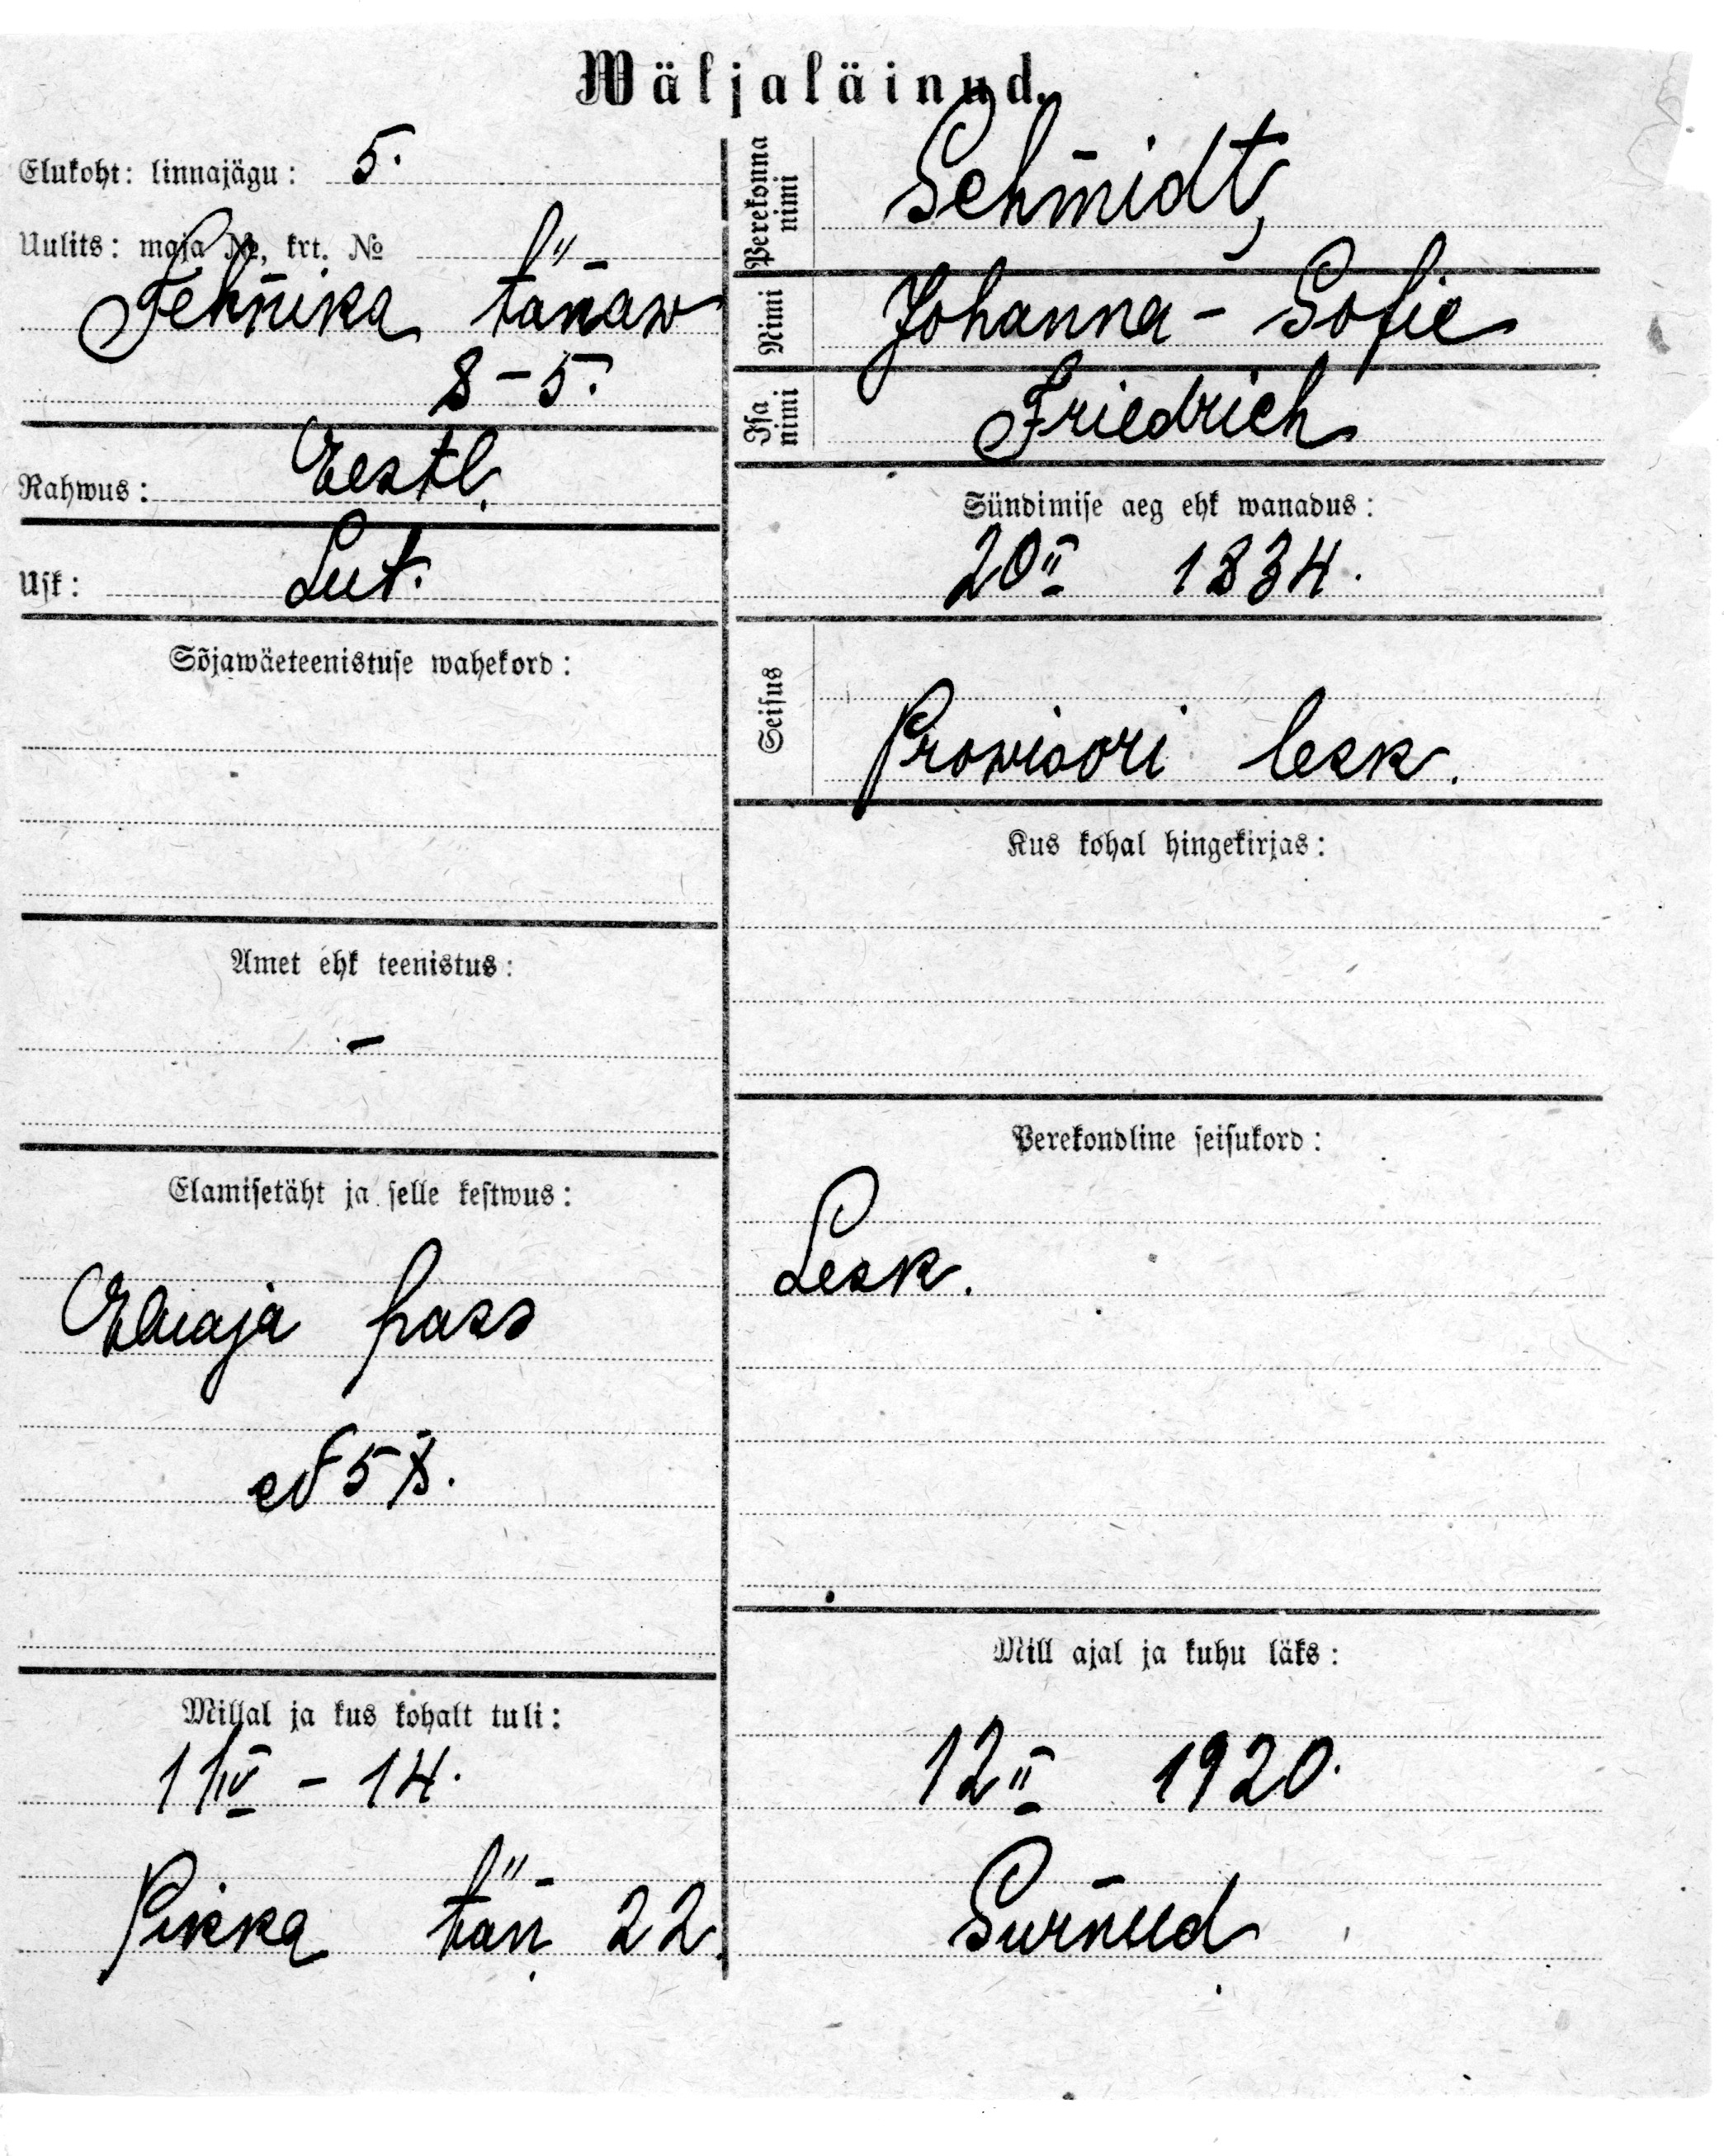 Wäljaläinud.
Elukoht: linnajägu: 5.
Uulits: maja №, krt. №
Tehnika tänaw
8-5.
Rahwus: Eestl.
Usk: Lut.
Sõjawäeteenistuse wahekord:
Amet ehk teenistus:
–
Elamisetäht ja selle kestwus:
Eluaja pass
№ 58.
Millal ja kus kohalt tuli:
11 IV - 14.
Pikka tän 22.
Perekonna nimi Schmidt,
Nimi Johanna - Sofie
Isa nimi Friedrich
Sündimise aeg ehk wanadus:
20 II 1834.
Seisus
Prowisori lesk.
Kus kohal hingekirjas:
Perekondline seisukord:
Lesk.
Mill ajal ja kuhu läks:
12 II 1920.
Surnud